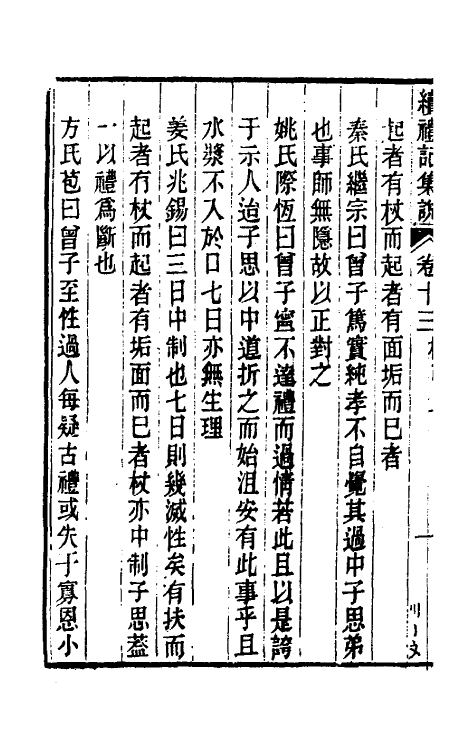 續禮記集說
卷十三
一
起者有杖而起者有面垢而已者
秦氏繼宗曰曾子篤實純孝不自覺其過中子思弟
也事師無隱故以正對之
姚氏際恆曰曾子甯不達禮而過情若此且以是誇
于示人迨子思以中道折之而始沮安有此事乎且
水漿不入於口七日亦無生理
姜氏兆錫曰三日中制也七日則幾滅性矣有扶而
起者有杖而起者有垢面而已者杖亦中制子思葢
一以禮爲斷也
方氏苞曰曾子至性過人每疑古禮或失于寡恩小